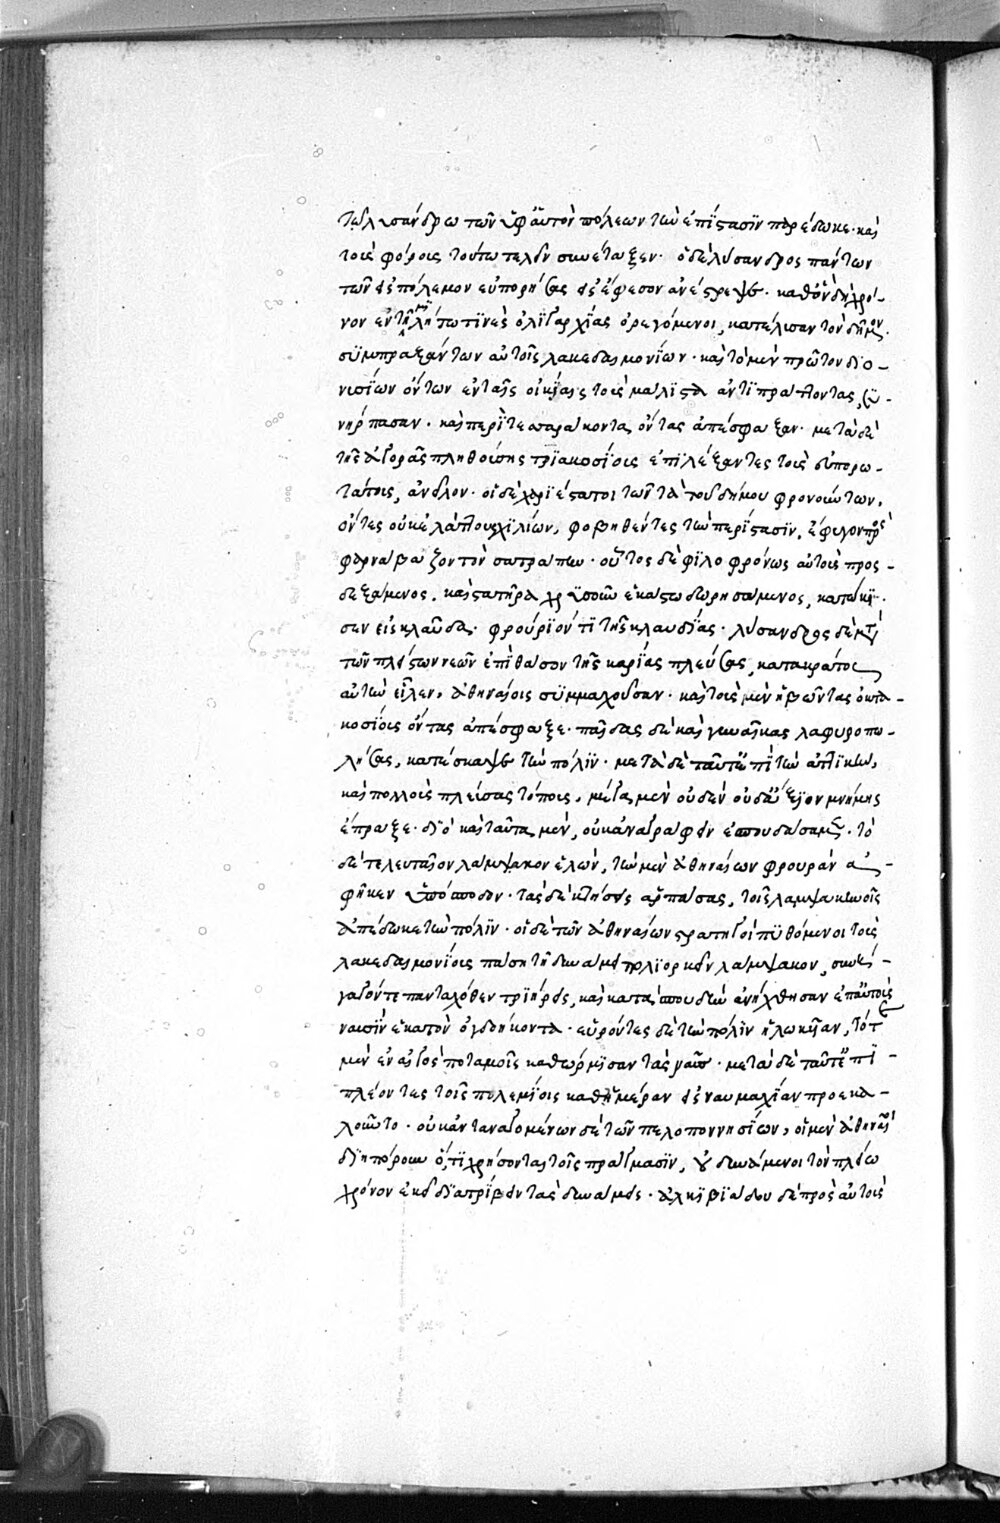 τῷ λυσάνδρῳ τῶν ὑφ' αὑτὸν πόλεων τὴν ἐπίστασιν παρέδωκε· καὶ
τοὺς φόρους τούτῳ τελεῖν συνέταξεν· ὁ δὲ λύσανδρος πάντων
τῶν εἰς πόλεμον εὐπορήσας εἰς ἔφεσον ἀνέστρεψε· καθ' ὃν δὴ χρό-
νον ἐν τῇ μιλήτῳ τινὲς ὀλιγαρχίας ὀρεγόμενοι, κατέλυσαν τὸν δῆμον·
συμπραξάντων αὐτοῖς λακεδαιμονίων· καὶ τὸ μὲν πρῶτον διο-
νυσίων ὄντων ἐν ταῖς οἰκίαις τοὺς μάλιστα ἀντιπράττοντας, συ-
νήρπασαν· καὶ περὶ τεσσαράκοντα ὄντας ἀπέσφαξαν· μετὰ δὲ
τῆς ἀγορᾶς πληθούσης τριακοσίους ἐπιλέξαντες τοὺς εὐπορω-
τάτους, ἀνεῖλον· οἱ δὲ χαριέστατοι τῶν τὰ τοῦ δήμου φρονούντων,
ὄντες οὐκ ἐλάττους χιλίων, φοβηθέντες τὴν περίστασιν, ἔφυγον πρὸς
φαρνάβαζον τὸν σατράπην· οὗτος δὲ φιλοφρόνως αὐτοὺς προς-
δεξάμενος, καὶ στατῆρα χρυσοῦν ἑκάστῳ δωρησάμενος, κατῴκι-
σεν εἰς κλαῦδα· φρούριόν τι τῆς κλαυδίας· λύσανδρος δὲ μετὰ
τῶν πλείστων νεῶν ἐπὶ θάσον τῆς καρίας πλεύσας, κατακράτος
αὐτὴν εἷλεν, ἀθηναίοις συμμαχοῦσαν· καὶ τοὺς μὲν ἡβῶντας ὀκτα-
κοσίους ὄντας ἀπέσφαξε· παῖδας δὲ καὶ γυναῖκας λαφυροπω-
λήσας, κατέσκαψε τὴν πόλιν· μετὰ δὲ ταῦτ' ἐπὶ τὴν ἀττικὴν,
καὶ πολλοὺς πλεύσας τόπους, μέγα μὲν οὐδὲν οὐδ' ἄξιον μνήμης
ἔπραξε· διὸ καὶ ταῦτα μὲν, οὐκ ἀναγράφειν ἐσπουδάσαμεν· τὸ
δὲ τελευταῖον λάμψακον ἑλὼν, τὴν μὲν ἀθηναίων φρουρὰν ἀ-
φῆκεν ὑπόσπονδον· τὰς δὲ κτήσεις ἁρπάσας, τοῖς λαμψακηνοῖς
ἀπέδωκε τὴν πόλιν· οἱ δὲ τῶν ἀθηναίων στρατηγοὶ πυθόμενοι τοὺς
λακεδαιμονίους πάσῃ τῇ δυνάμει πολιορκεῖν λάμψακον, συνή-
γαγόν τε πανταχόθεν τριήρεις, καὶ κατὰ σπουδὴν ἀνήχθησαν ἐπ' αὐτοὺς
ναυσὶν ἑκατὸν ὀγδοήκοντα· εὑρόντες δὲ τὴν πόλιν ἡλωκυῖαν, τότε
μὲν ἐν αἰγὸς ποταμοῖς καθώρμισαν τὰς ναῦς· μετὰ δὲ ταῦτ' ἐπι-
πλέοντες τοῖς πολεμίοις καθ' ἡμέραν εἰς ναυμαχίαν προεκα-
λοῦντο· οὐκ ἀνταναγομένων δὲ τῶν πελοποννησίων, οἱ μὲν ἀθηναῖοι
διηπόρουν ὅ, τι χρήσονται τοῖς πράγμασιν, οὐ δυνάμενοι τὸν πλείω
χρόνον ἐκεῖ διατρίβειν τὰς δυνάμεις· ἀλκιβιάδου δὲ πρὸς αὐτοὺς